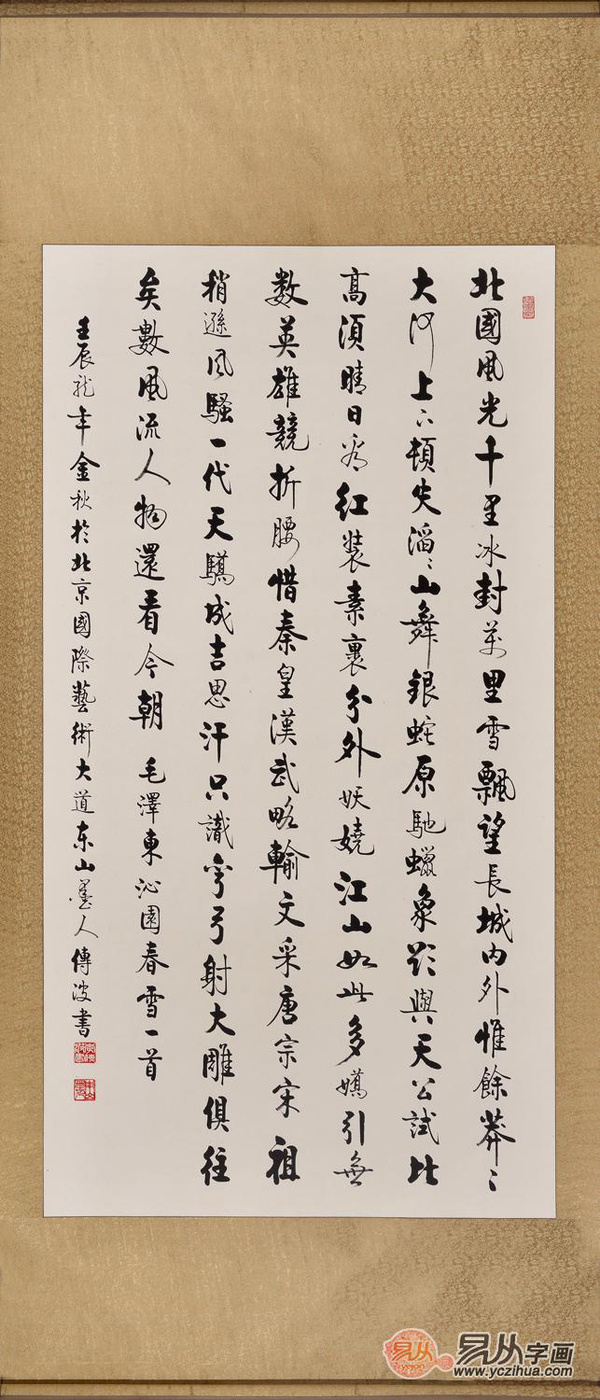 北國風光千里冰封萬里雪飄望長城内外惟餘莽〻
大河上下頓失滔〻山舞銀蛇原馳蠟象欲與天公試比
高須晴日看紅裝素裹分外妖嬈江山如此多嬌引無
数英雄競折腰惜秦皇漢武略輸文采唐宗宋祖
稍遜風騷一代天驕成吉思汗只識彎弓射大雕俱往
矣數風流人物還看今朝 毛澤東沁園春雪一首
壬辰龍年金秋於北京國際藝術大道东山墨人傳波書
易从
易从字画
www.yczihua.com